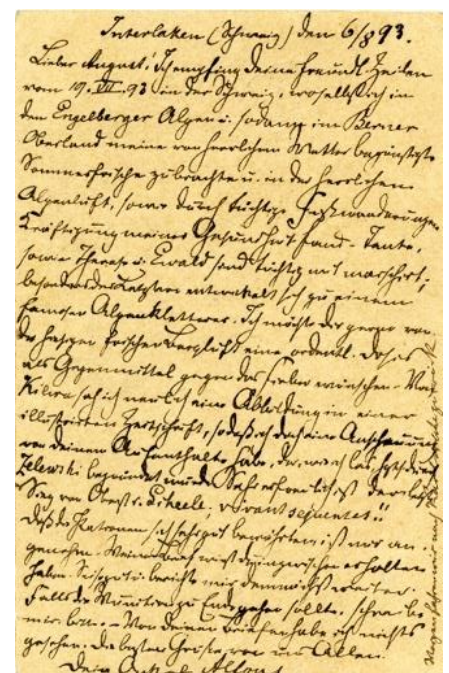 Interlaken (Schweiz) den 6/8 93.
Lieber August! Ich empfing Deine freundl. Zeilen
vom 19. VI. 93 in der Schweiz, woselbst ich in
den Engelberger Alpen u. sodann im Berner
Oberland meine von herrlichem Wetter begünstigte
Sommerfrische zubrachte u. in der herrlichen
Alpenluft, sowie durch tüchtige Fußwanderungen
Kräftigung meiner Gesundheit fand. - Tante,
sowie Therese u. Ewald sind tüchtig mit marschirt,
besonders der Letztere entwickelt sich zu einem
famosen Alpenkletterer. Ich möchte dir gerne von
der hiesigen frischen Bergluft eine ordentl. Dosis
als Gegenmittel gegen das Fieber wünschen. - Von
Kilwa sah ich neulich eine Abbildung in einer
illustrirten Zeitschrift, sodaß ich doch eine Anschauung
von deinem Aufenthalte habe, der, wie ich las, durch
Zelewski begründet wurde. Sehr erfreulich ist der
Sieg von Oberst v. Scheele; vivant sequentes!!
Daß die Patronen sich sehr gut bewährten, ist mir an-
genehm. - Meinen Brief wirst du inzwischen erhalten
haben. berichte mir demnächst weiter.
Falls die Munition zu Ende gehen sollte, schreibe
mir bitte. - Von deinen Briefen habe ich nichts
gesehen. Die besten Grüße von uns Allen.
Dein Onkel Alfons
Morgen wir nach